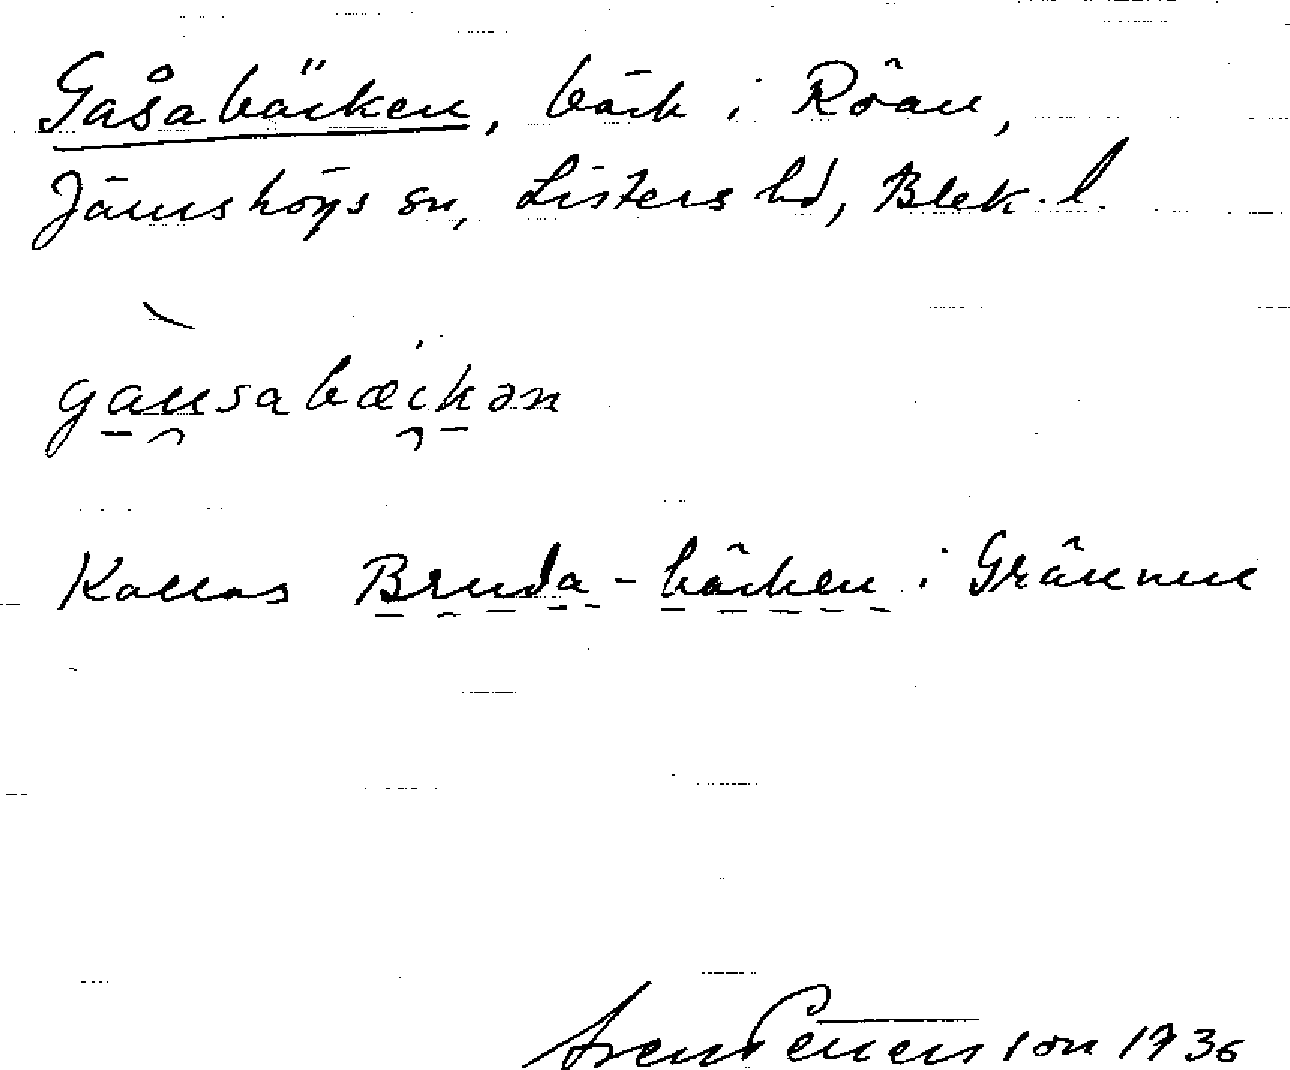 Gåsabäcken, bäck i Röan,
Jämshögs sn, Listers hd, Blek. l.
gausabæikən
Kallas Bruda-bäcken i Grännum
Sven Petersson 1936